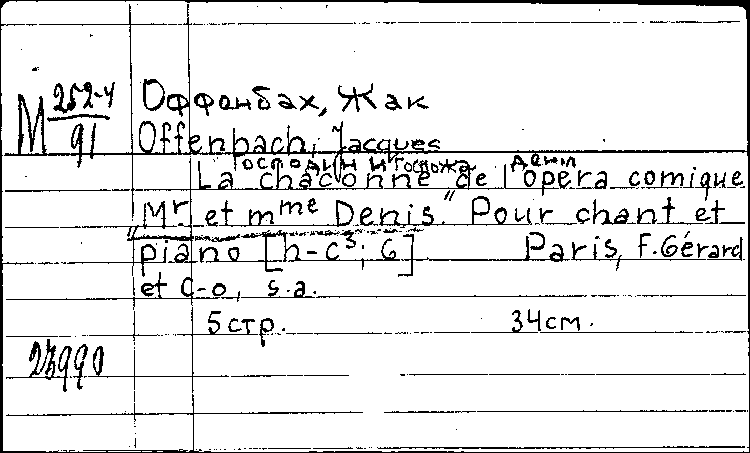 М 252-4/91
Оффенбах, Жак
Offenbach, Jacques
Господин и госпожа Дени
La chaconne de l'opera comique
"Mr. et mme Denis." Pour chant et
piano [h-c³; G] Paris, F. Gérard
et C-o, s.a.
5 стр. 34 см.